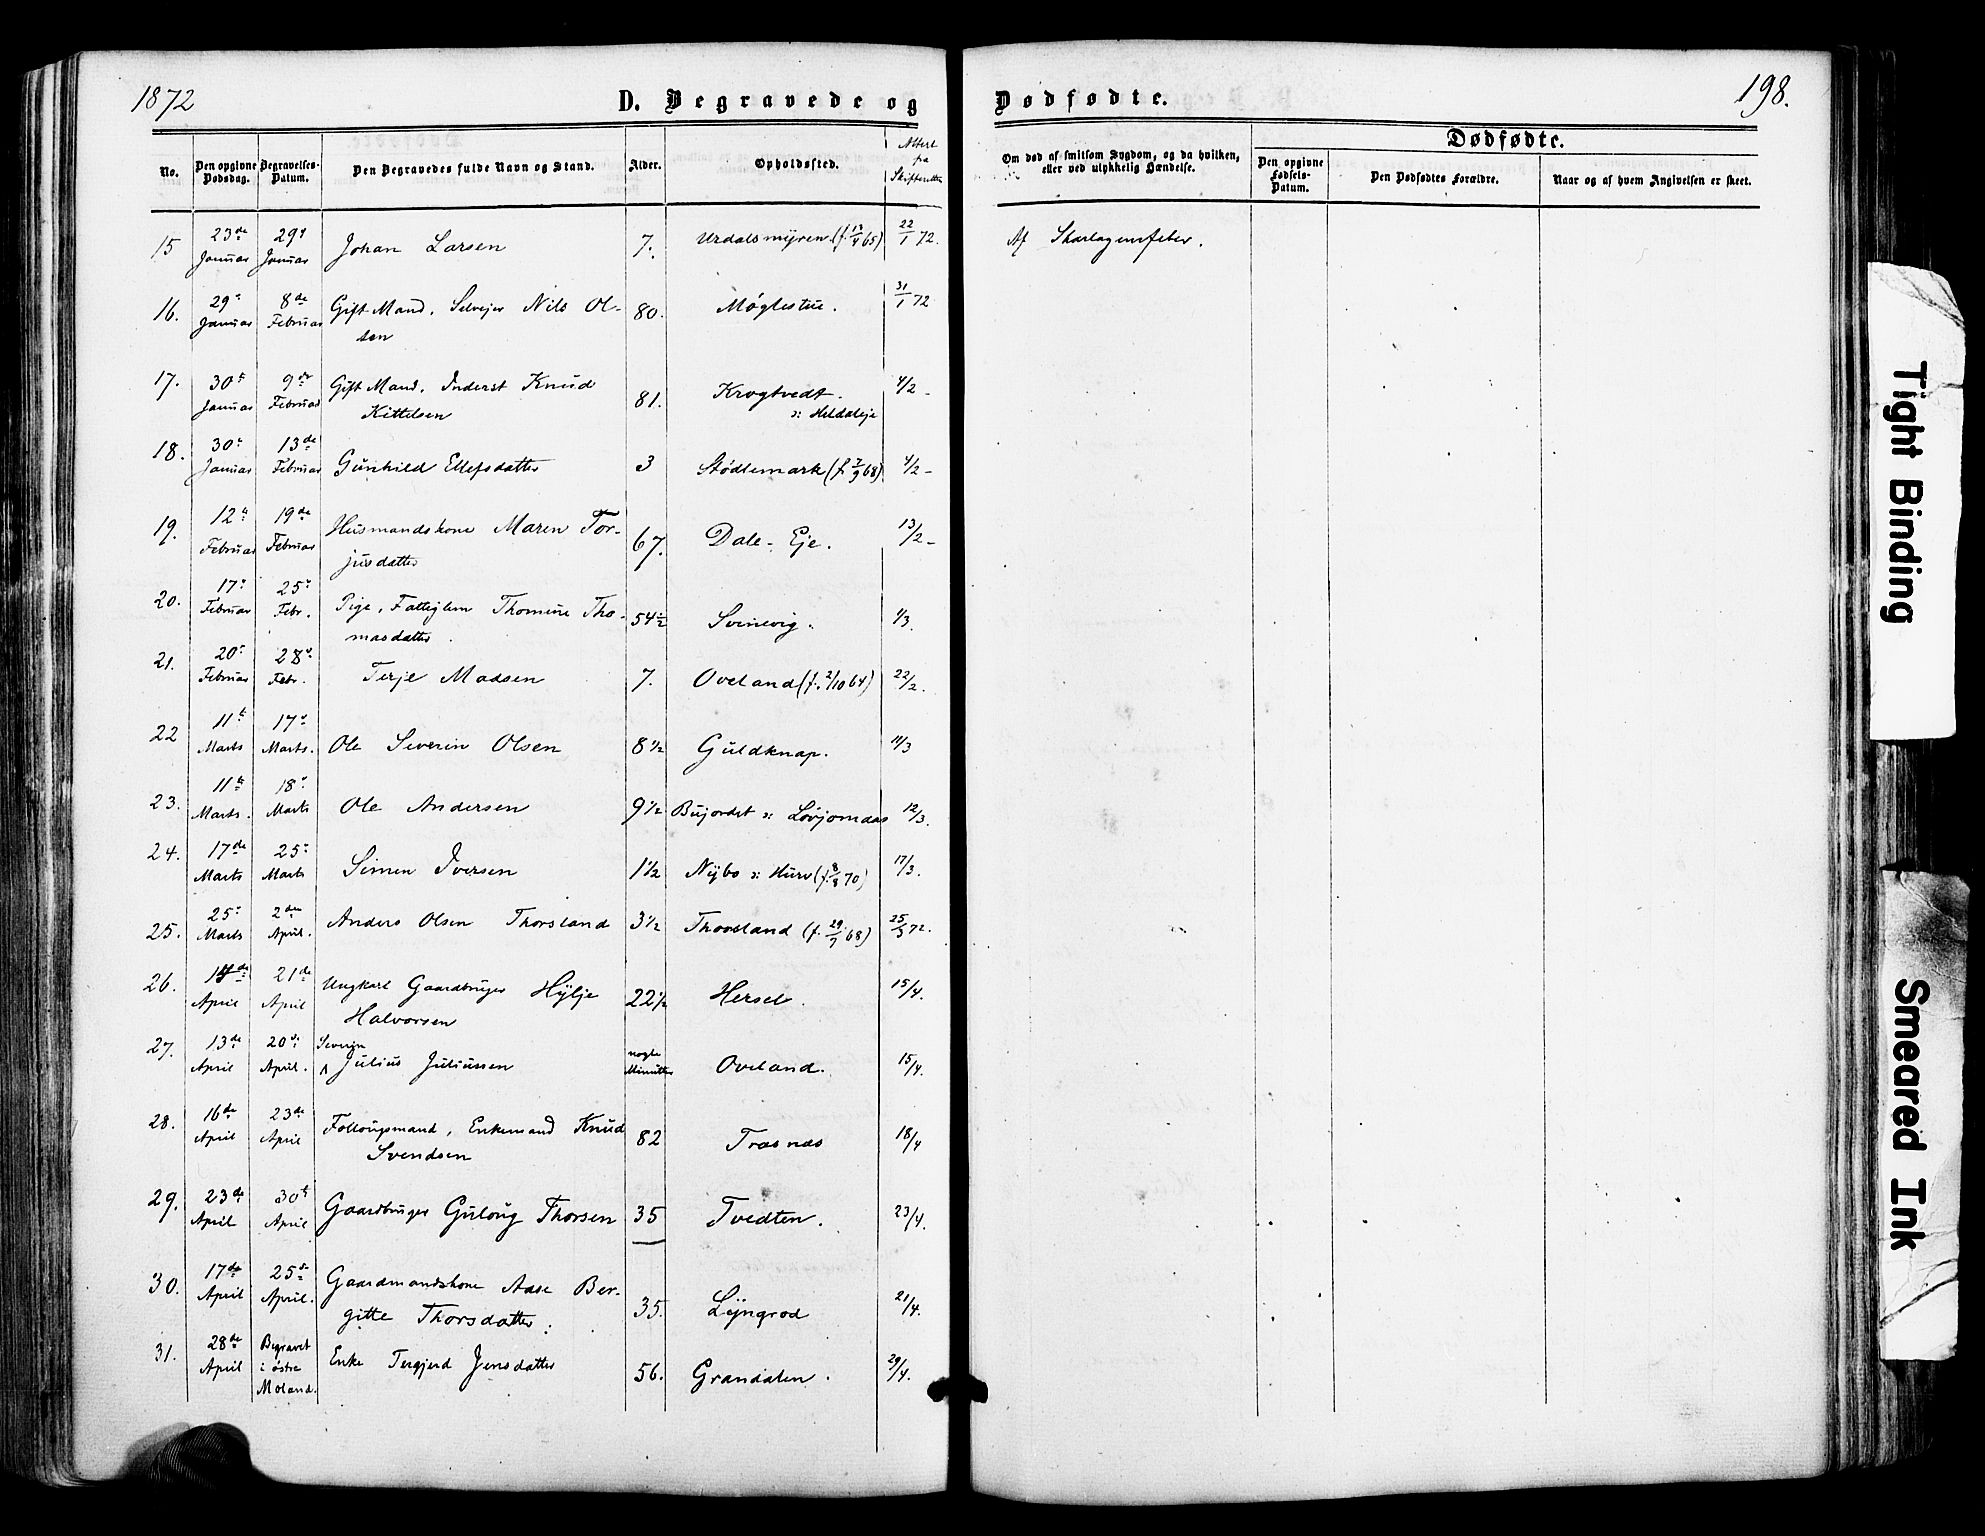 1872
D. Begravede og
Dødfødte.
198.
No.
Den opgivne Dødsdag.
Begravelses-Datum.
Den Begravedes fulde Navn og Stand.
Alder.
Opholdssted.
Attest fra Skifteretten
Om død af smitsom Sygdom, og da hvilken, eller ved ulykkelig Hændelse.
Dødfødte.
Den opgivne Fødsels-Datum.
Den Dødfødtes Forældre.
Naar og af hvem Angivelsen er skeet.
15 23de Januar 29de Januar Johan Larsen 7. Urdalsmyren. 22/1 72. Af Skarlagensfeber.
16. 29de Januar 8de Februar Gift Mand, Selveier Nils Ol-
sen 80. Møglestue. 31/1 72
17. 30te Januar 9de Februar Gift Mand, Inderst Knud
Kittelsen 81. Krogtvedt. 4/2 -
18. 30te Januar 13de Februar Gunhild Ellefsdatter 3 Stødlemark (f. 7/9 68) 4/2 -
19. 12te Februar 19de Februar Husmandskone Maren Tor-
jusdatter 67. Dale-Eje. 13/2 -
20. 17de Februar 25de Febr. Pige, Fattiglem Thomine Tho-
masdatter 54 1/2 Svinevig. 1/3.
21. 20de Februar 28de Febr. Terje Madsen 7. Oveland (f. 2/10 64) 22/2.
22 11te Marts 17de Marts. Ole Severin Olsen 8 1/2 Guldknap. 11/3
23. 11te Marts. 18de Marts Ole Andersen 9 1/2 Bujordet 12/3.
24. 17de Marts 25de Marts Simen Iversen 1 1/2 Nybo (f. 8/8 70) 17/3.
25. 25de Marts 2den April. Anders Olsen Thorsland 3 1/2 Thorsland (f. 29/7 68) 25/3 72.
26. April 21de April Ungkarl Gaardbruger Hylje
Halvorsen 22 1/2 Hersel. 15/4.
27. 13de April 20de April. Severin
Julius Juliussen nogle Minutter Oveland. 15/4.
28. 16de April 23de April Follougsmand, Enkemand Knud
Svendsen 82 Træsnæs 18/4
29. 23de April 30te April Gaardbruger Guloug Thorsen 35 Tvedten. 23/4.
30. 17de April 25de April. Gaardmandskone Aase Ber-
gitte Thorsdatter. 35. Lyngrod 21/4.
31. 28de April Begravet i østre Moland. Enke Tergjerd Jensdatter 56. Grandalen. 29/4.
Tight Binding
Smeared Ink